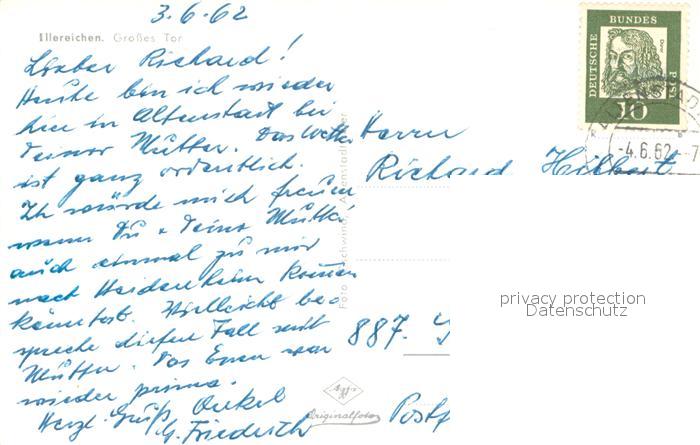 3.6.62
Illereichen. Großes Tor
Lieber Richard!
Heute bin ich wieder
hier in Altenstadt bei
Deiner Mutter. Das Wetter
ist ganz ordentlich.
Ich würde mich freuen
wenn Du & Deine Mutter
auch einmal zu mir
nach Heidenheim kommen
könntest. Vielleicht be-
spreche diesen Fall mit
Mutter. Das Essen war
wieder prima.
Herzl. Gruß Onkel
G. Friederich
Foto Gschwind, Altenstadt/Iller
DEUTSCHE
BUNDES
POST
Dürer
10
-4.6.62.-7
Herrn
Richard Hilbert
privacy protection
Datenschutz
887.
Agfa
Originalfoto
Postf